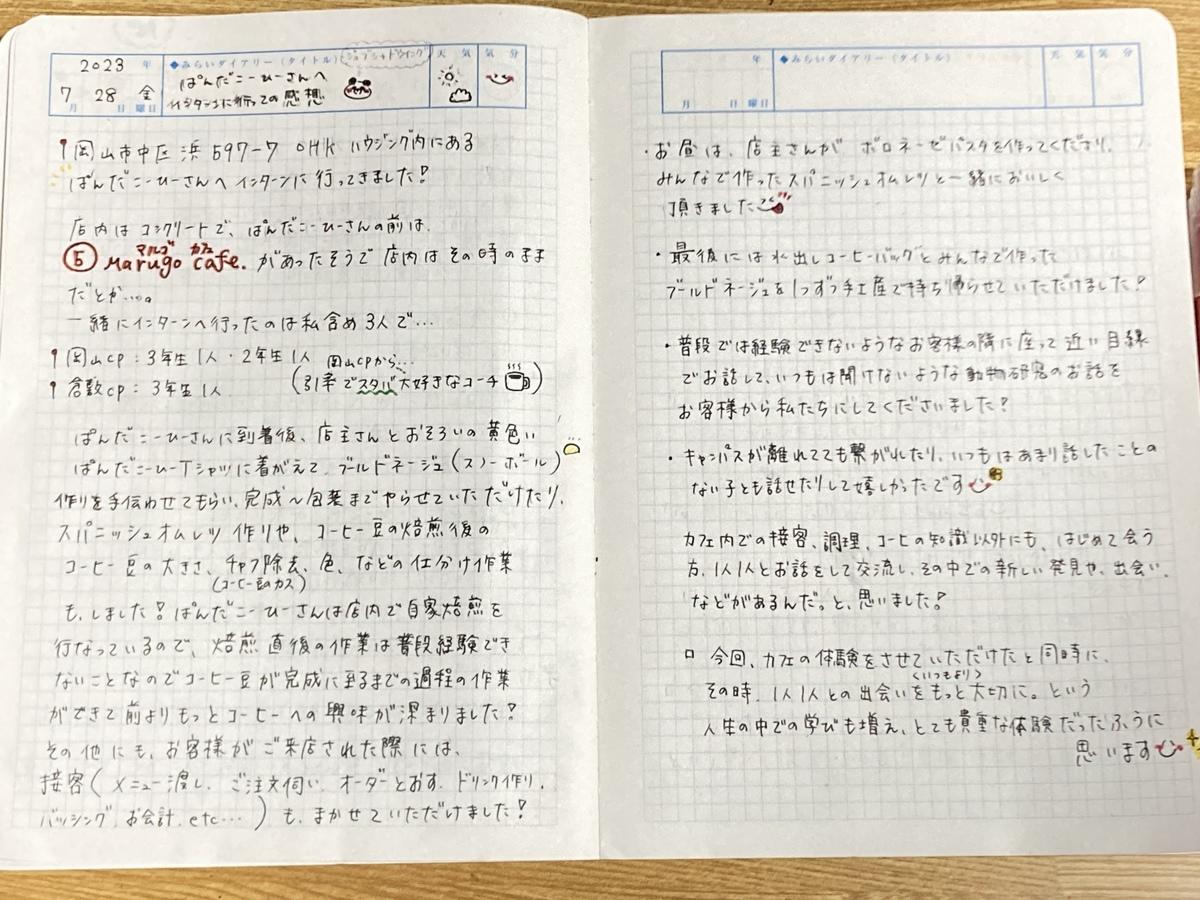 2023 年
7月 28日 金曜日
◆みらいダイアリー（タイトル） ジョブシャドウイング
ぱんだこーひーさんへ
インターンに行っての感想
天気
気分
岡山市中区浜597-7 OHKハウジング内にある
ぱんだこーひーさんへインターンに行ってきました!
店内はコンクリートで、ぱんだこーひーさんの前は、
マルゴ カフェ
⑤ Marugo cafe. があったそうで店内はその時のまま
だとか…。
一緒にインターンへ行ったのは私含め3人で…
岡山cp：3年生1人・2年生1人
岡山cpから…
倉敷cp：3年生1人 (引率でスタバ大好きなコーチ)
ぱんだこーひーさんに到着後、店主さんとおそろいの黄色い
ぱんだこーひーTシャツに着がえて、ブールドネージュ(スノーボール)
作りを手伝わせてもらい、完成〜包装までやらせていただけたり、
スパニッシュオムレツ作りや、コーヒー豆の焙煎後の
コーヒー豆の大きさ、チャフ除去、色、などの仕分け作業
(コーヒー豆のカス)
も、しました!ぱんだこーひーさんは店内で自家焙煎を
行なっているので、焙煎直後の作業は普段経験でき
ないことなのでコーヒー豆が完成に至るまでの過程の作業
ができて前よりもっとコーヒーへの興味が深まりました!
その他にも、お客様がご来店された際には、
接客(メニュー渡し、ご注文伺い、オーダーとおす、ドリンク作り、
バッシング、お会計、etc…)も、まかせていただけました!
年
月 日 曜日
◆みらいダイアリー（タイトル）
天気
気分
・お昼は、店主さんが ボロネーゼパスタを作ってくださり、
みんなで作ったスパニッシュオムレツと一緒においしく
頂きました
・最後には水出しコーヒーバッグとみんなで作って
ブールドネージュを1つずつ手土産で持ち帰らせていただけました!
・普段では経験できないようなお客様の隣に座って近い目線
でお話して、いつもは聞けないような動物研究のお話を
お客様から私たちにしてくださいました!
・キャンパスが離れてても繋がれたり、いつもはあまり話したことの
ない子とも話せたりして嬉しかったです
カフェ内での接客、調理、コーヒの知識以外にも、はじめて会う
方、1人1人とお話をして交流し、その中での新しい発見や、出会い、
などがあるんだ。と、思いました!
□ 今回、カフェの体験をさせていただけたと同時に、
<いつもより>
その時、1人1人との出会いをもっと大切に。という
人生の中での学びも増え、とても貴重な体験だったふうに
思います